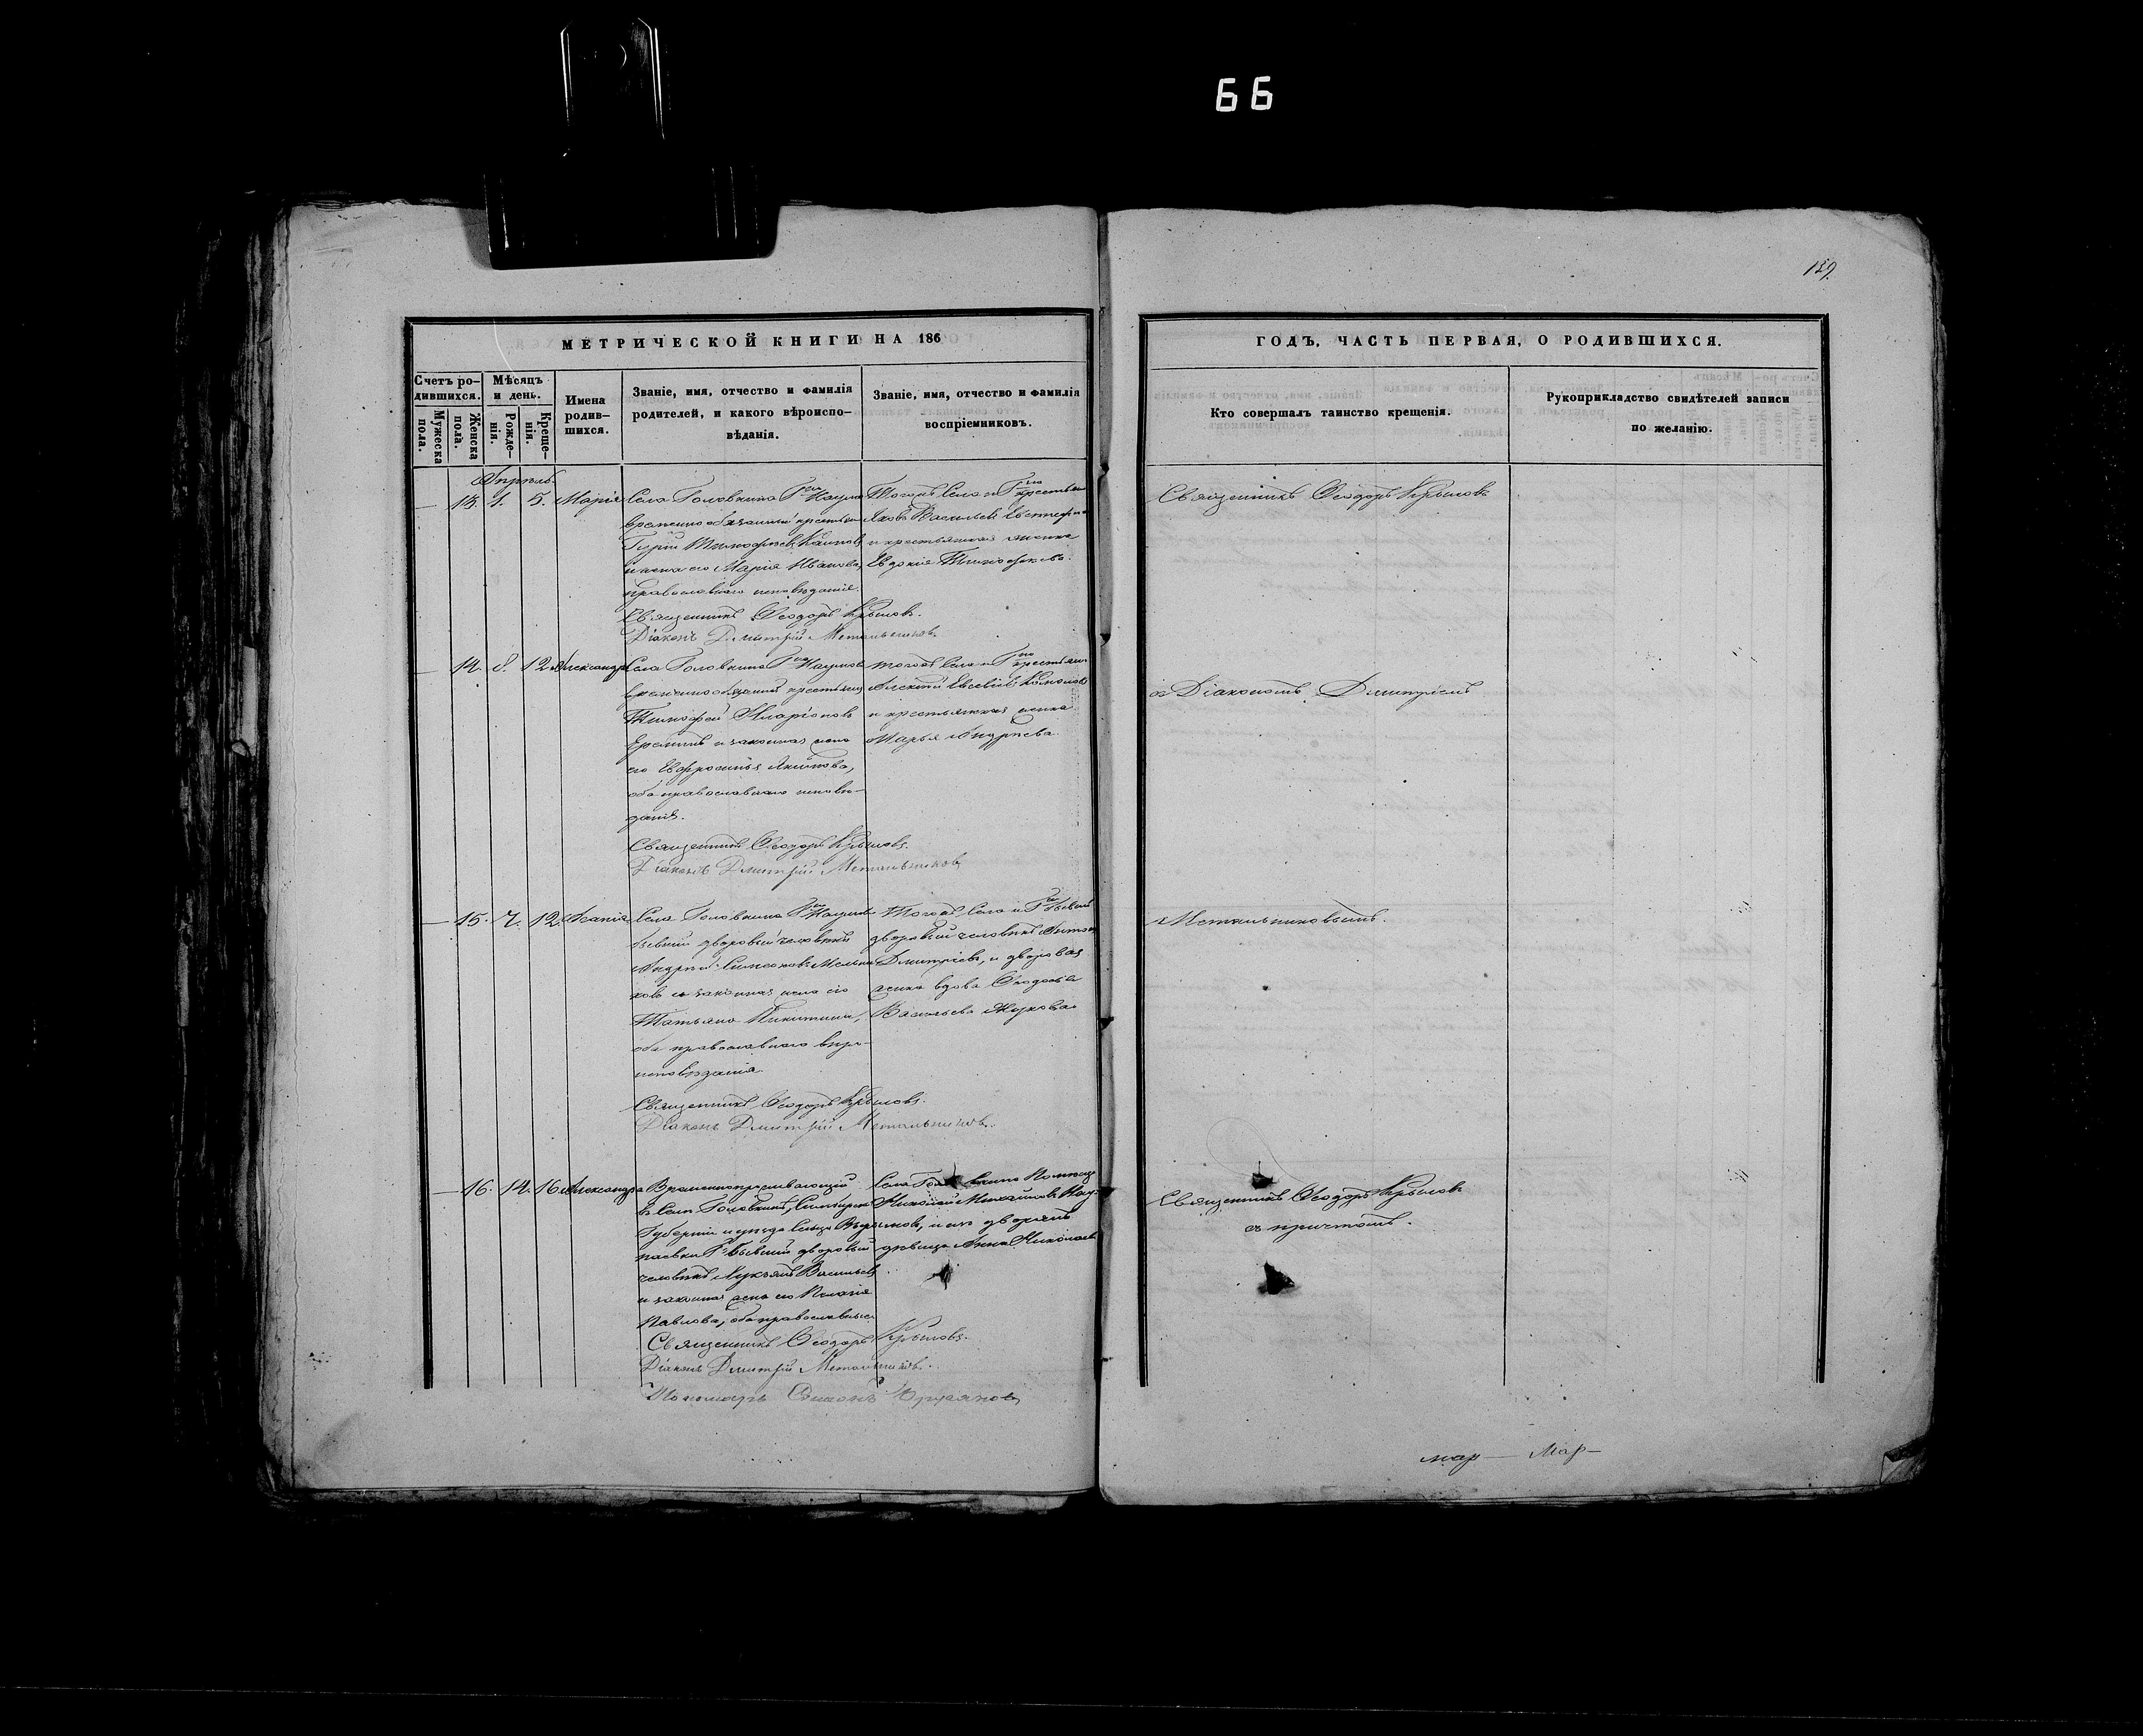 66
159
МЕТРИЧЕСКОЙ КНИГИ НА 186
ГОДЪ, ЧАСТЬ ПЕРВАЯ, О РОДИВШИХСЯ.
Счетъ ро-
дившихся.
Мужеска
пола.
Женска
пола.
Мѣсяцъ
и день.
Рожде-
нія.
Креще-
нія.
Имена
родив-
шихся.
Званіе, имя, отчество и фамилія
родителей, и какого вѣроиспо-
вѣданія.
Званіе, имя, отчество и фамилія
воспріемниковъ.
Кто совершалъ таинство крещенія.
Рукоприкладство свидѣтелей записи
по желанію.
Апрѣль.
13. 1. 5. Марія
Села Головкина Гна Наумова
временно обязанный крестьян
Тимофѣевъ
и жена его Марія Иванова,
православнаго исповѣданія.
Священникъ Ѳеодоръ Крыловъ.
Діаконъ Дмитрій Метальниковъ
Тогожъ Села и Гна крестьян
Яковъ Васильевъ
и крестьянская женка
Евдокія Тимофѣева.
Священникъ Ѳеодоръ Крыловъ
14. 8. 12. Александра
Села Головкина Гна Наумова
временнообязанный крестьянин
Тимофей Иларіоновъ
и законная жена
его Евфросинія Якимова,
оба православнаго исповѣ-
данія.
Священникъ Ѳеодоръ Крыловъ.
Діаконъ Дмитрій Метальниковъ
тогожъ Села и Гна крестьян
Алексѣй
и крестьянская женка
Марья Андреева
съ Діакономъ Димитріемъ
15. 7. 12.
Села Головкина Гна Наумова
бывшій дворовый человѣкъ
Андрей Симеоновъ Мельни
ковъ и законная жена его
Татьяна Никитина,
оба православнаго вѣро-
исповѣданія.
Священникъ Ѳеодоръ Крыловъ.
Діаконъ Дмитрій Метальниковъ.
Тогожъ Села и Гна бывшій
дворовый человѣкъ Антонъ
Дмитріевъ, и дворовая
женка вдова
Васильева Жукова
Метальниковымъ.
16. 14. 16. Александра
Временнопроживающій
въ Селѣ Головкинѣ, Симбирск
Губерніи и уѣзда Сельца
бывшій дворовый
человѣкъ Лукьянъ Васильевъ
и законная жена его Пелагія
Павлова, оба православные.
Священникъ Ѳеодоръ Крыловъ.
Діаконъ Дмитрій Метальниковъ.
Пономарь Симеонъ
Села Головкина Помѣщ
Николай Михайловъ Нау-
мовъ, и изъ дворянъ
дѣвица Анна Николаев
Священникъ Ѳеодоръ Крыловъ
съ причтомъ.
мар — Мар —